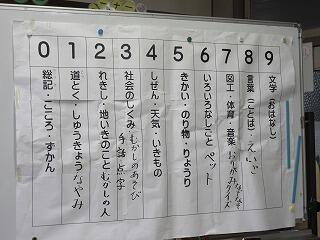 0 1 2 3 4 5 6 7 8 9
総記・こころ・ずかん
道とく・しゅうきょう なやみ
れきし・地いきのこと むかしの人
社会のしくみ むかしのあそび
手話 点字
しぜん・天気・いきもの
きかい・のり物・りょうり
いろいろなしごと ペット
図工・体育・音楽 おりがみ クイズ
なぞなぞ
言葉（ことば） えいご
文学（おはなし）